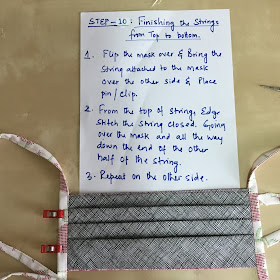 STEP-10: Finishing the Strings
from Top to bottom.
1. Flip the mask over & Bring the
String attached to the mask
over the other side & Place
pin/clip.
2. From the top of strings Edge
Stitch the string closed. Going
over the mask and all the way
down the end of the other
half of the string.
3- Repeat on the other side.